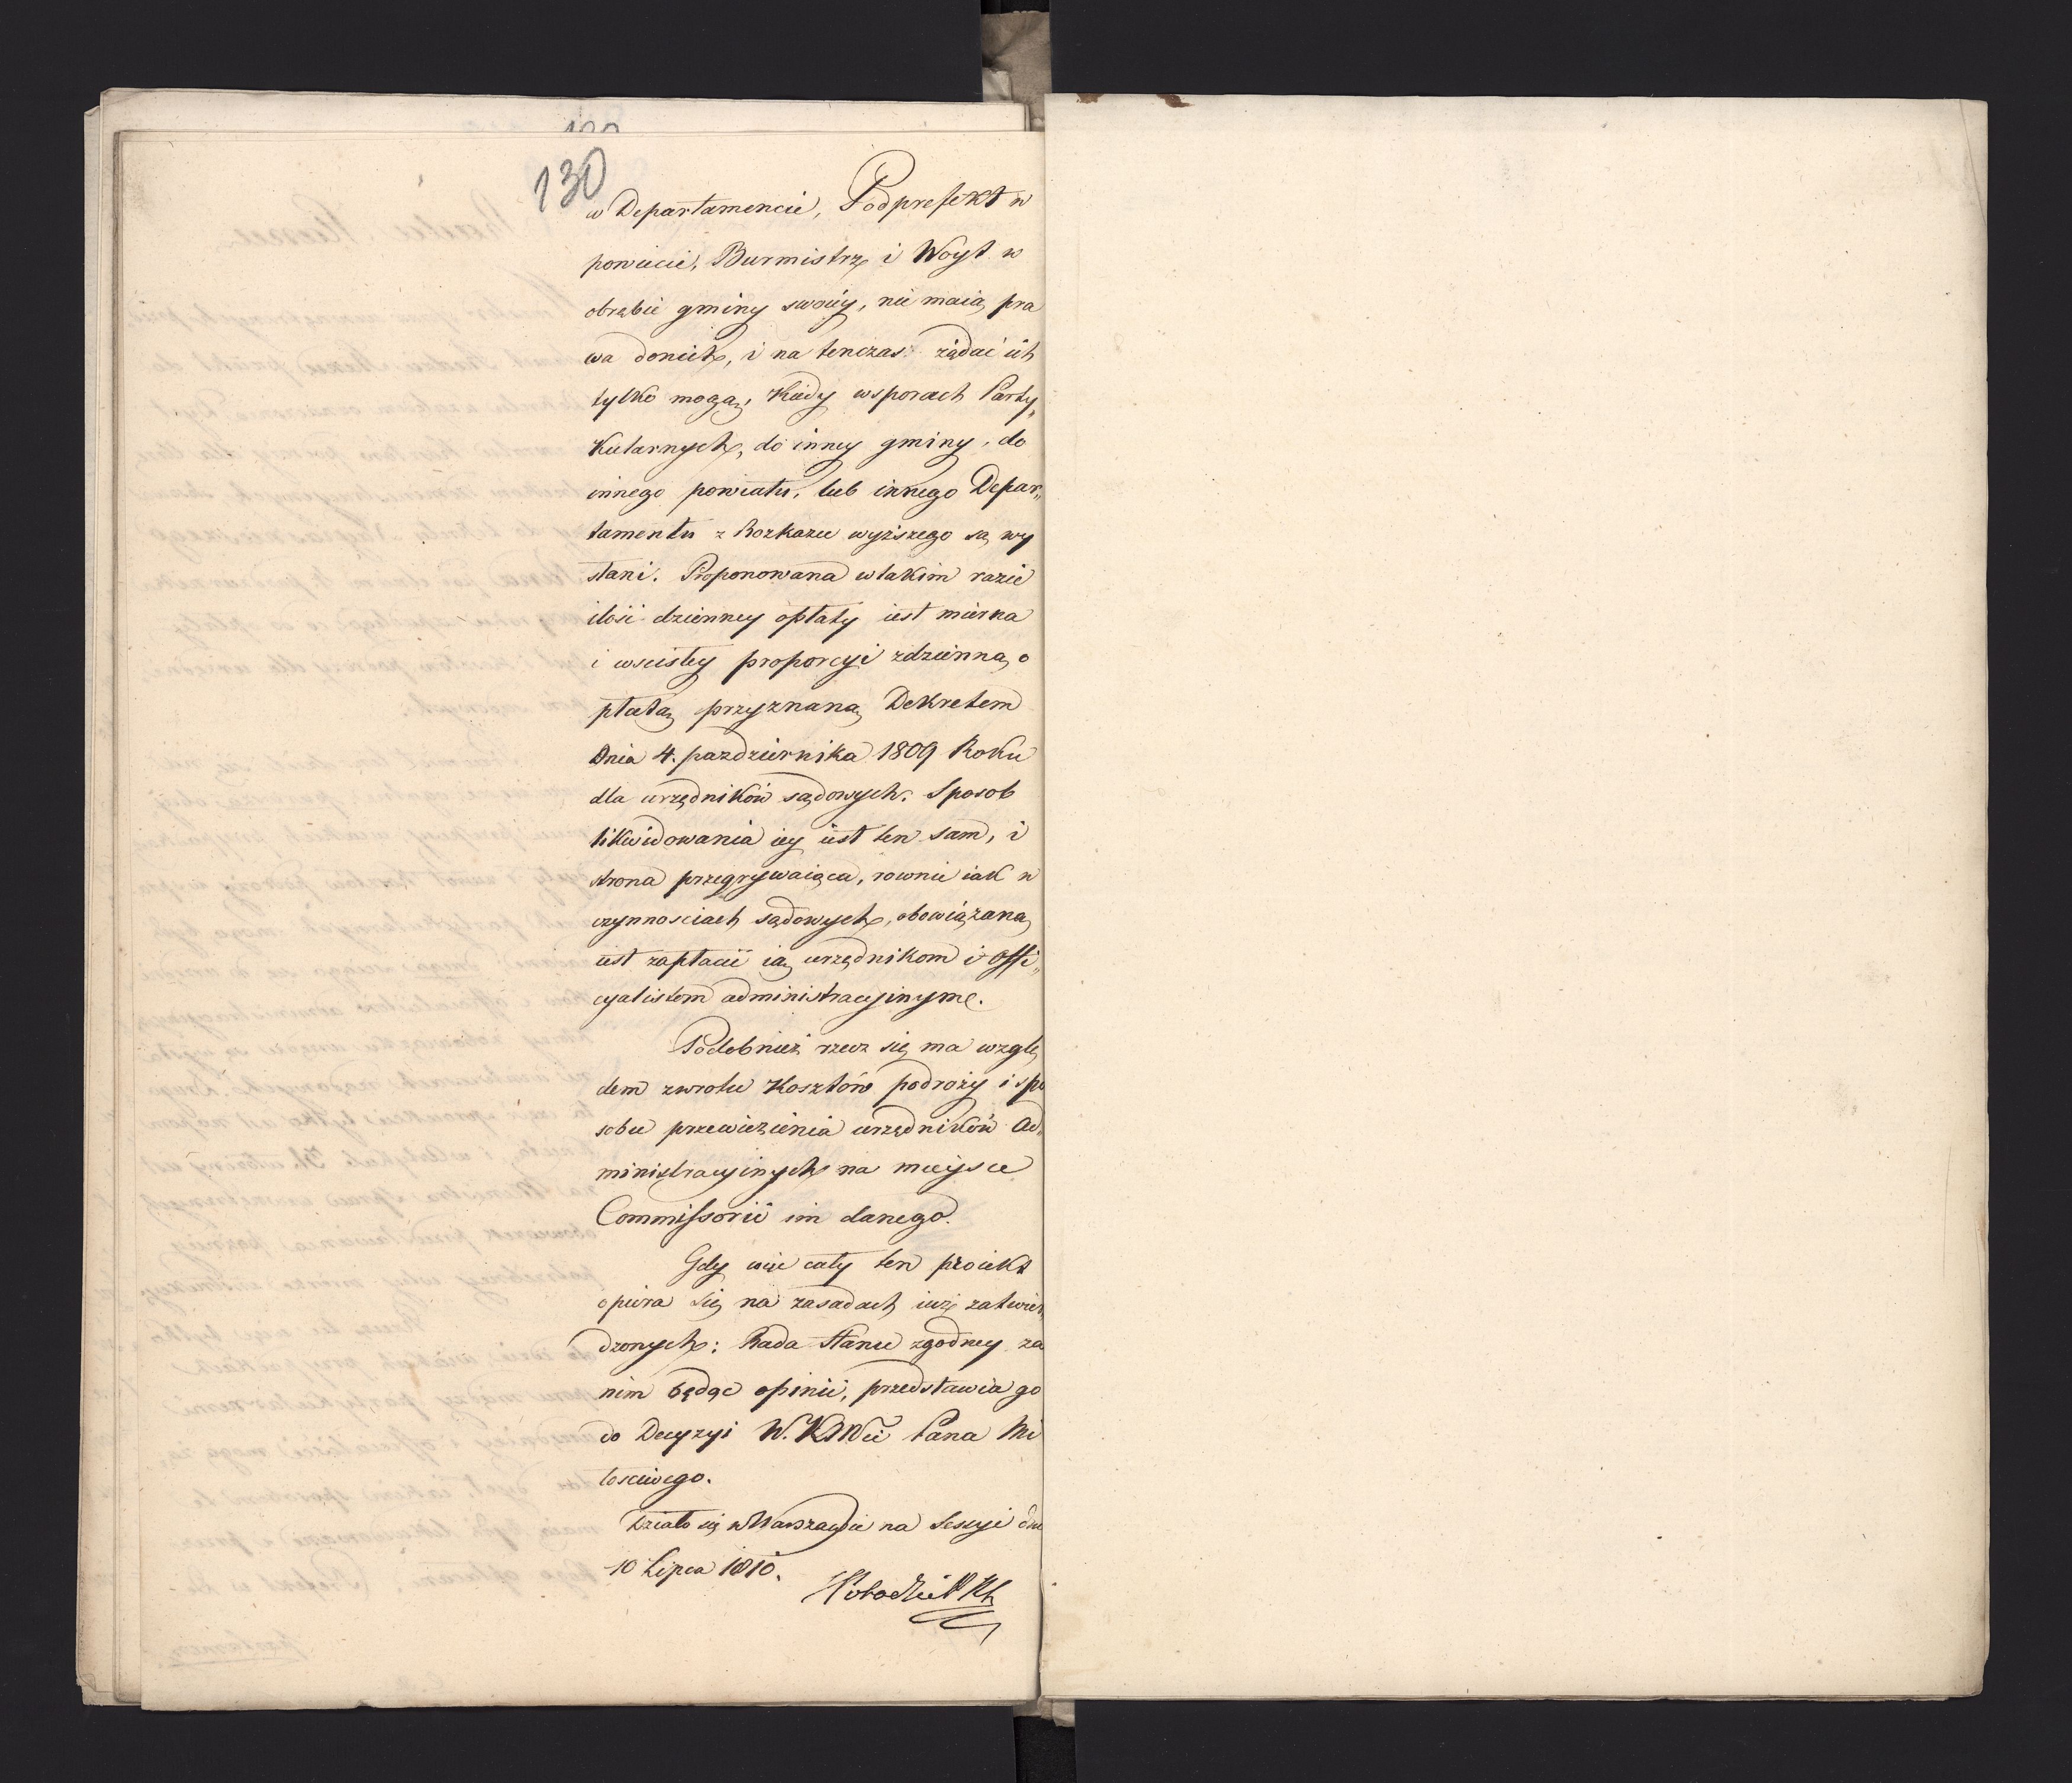 130
w Departamencie, Podprefekt w
powiecie, Burmistrz i Woyt w
obrębie gminy swoiéy, nie maią pra
wa donich, i na tenczas żądać ich
tylko mogą, Kiedy wsporach Party„
Kularnych, do inney gminy, do
innego powiatu, lub innego Depar„
tamentu z Rozkazu wyższego są wy
słani. Proponowana wtakim razie
ilość dzienney opłaty iest mierna
i wscisłey proporcyi zdzienną o
płatą przyznaną Dekretem
Dnia 4. pazdziernika 1809 Roku
dla urzędników sądowych. Sposob
likwidowania iey iest ten sam, i
strona przegrywaiąca, rownie iak w
czynnosciach sądowych, obowiązaną
iest zapłacić ią urzędnikom i offi„
cyalistom administracyinym.
Podobnież rzecz się ma wzglę
dem zwrotu Kosztów podroży i spo
sobu przewiezienia urzędników Ad„
ministracyinych na mieysce
Commissorii im danego.
Gdy więc cały ten proiekt
opiera się na zasadach iuż zatwier„
dzonych: Rada Stanu zgodney za
nim będąc opinii, przedstawia go
do Decyzyi W. K Mci Pana Mi
łosciwego.
Działo się w Warszawie na Sessyi dnia
10 Lipca 1810.